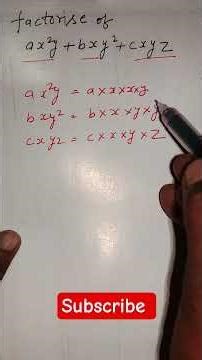 factorise of
ax²y + bxy² + cxyz
ax²y = a×x×x×y
bxy² = b×x×y×y
cxyz = c×x×y×z
Subscribe